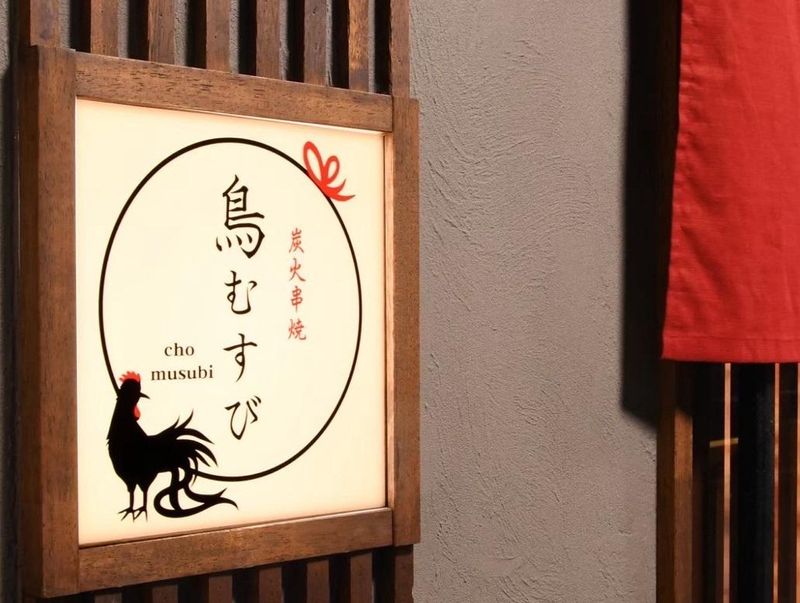 炭火串焼
鳥むすび
cho
musubi